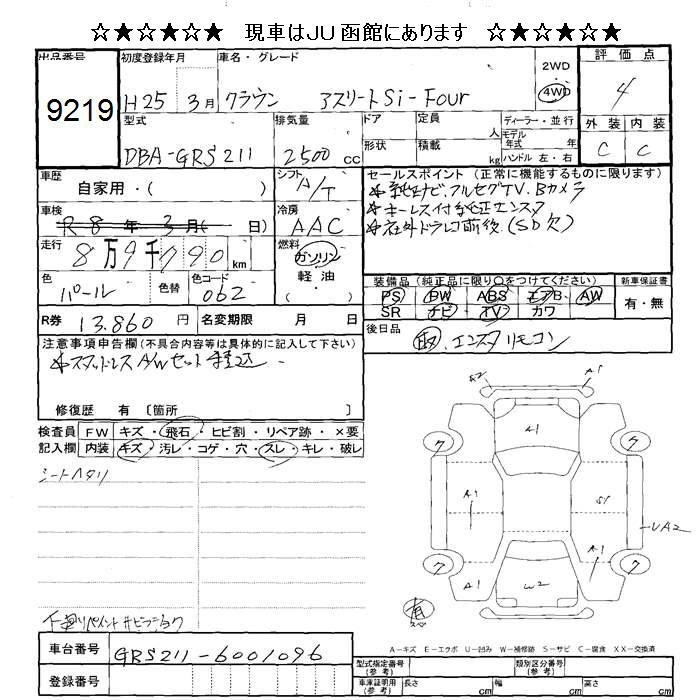 ☆★☆★☆ 現車はJU函館にあります ☆★☆★☆
出品番号 初度登録年月 車名・グレード 2WD 4WD 評価点
9219 H25 3月 クラウン アスリートSi-Four 4
型式 排気量 ドア 定員 人 ディーラー・並行 外装 内装
DBA-GRS211 2500cc 形状 積載 kg モデル年式 年式 ハンドル 左・右 C C
車歴 自家用・( ) シフト A/T セールスポイント (正常に機能するものに限ります)
★純正ナビ、フルセグTV、Bカメラ
車検 R8年3月( 日) 冷房 AAC ★キーレス付純正エンスタ
★社外ドラレコ前後(SD欠)
走行 8万9千790km 燃料 ガソリン 軽油 ( )
色 パール 色替 色コード 062 装備品 (純正品に限り〇をつけてください) 新車保証書
PS PW ABS エアB AW 有・無
SR ナビ TV カワ
R券 13,860円 名変期限 月 日 後日品 取、エンスタリモコン
注意事項申告欄(不具合内容等は具体的に記入して下さい)
★スタッドレスA/Wセット積込
修復歴 有 〔箇所 〕
検査員 FW キズ・飛石・ヒビ割・リペア跡・×要
記入欄 内装 キズ・汚レ・コゲ・穴・スレ・キレ・破レ
シートヘタリ
A2 A1
A1
ワ ワ
A1 S1
UA2
A1
ワ ワ
A1 W2
有
スペ
下廻りペイント サビ
A-キズ E-エクボ U-凹み W-補修跡 S-サビ C-腐食 XX-交換済
車台番号 GRS211-6001096
登録番号
型式指定番号(参考) 類別区分番号(参考)
車庫証明用(参考) 長さ cm 幅 cm 高さ cm